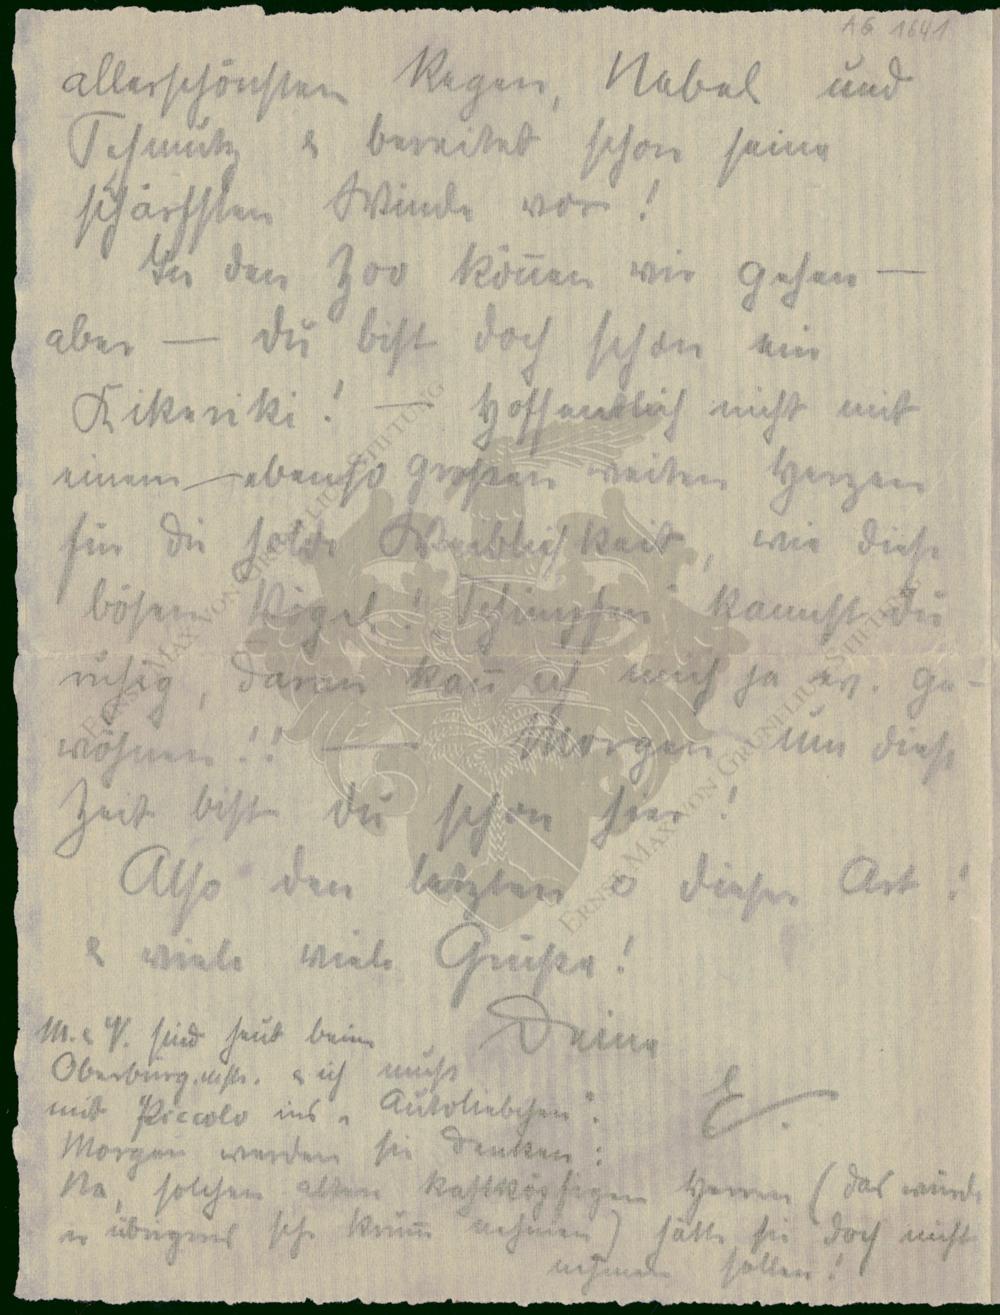 AG 1641
allerschönsten Regen, Nebel und
Schmutz & bereitet schon seine
schärfsten Winde vor!
In den Zoo kön̄en wir gehen —
aber — du bist doch schon ein
Kikeriki! — Hoffentlich nicht mit
einem ebenso grossen weiten Herzen
für die holde Weiblichkeit, wie diese
bösen Vögel! "Schimpfen" kannst du
ruhig, daran kan̄ ich mich ja ev. ge-
wöhnen!! — Morgen um diese
Zeit bist du schon hier!
Also den letzten o dieser Art!
& viele viele Grüße!
Deine
E.
M. & V. sind heut beim
Oberbürg.mstr. & ich muß
mit Piccolo ins „Autoliebchen".
Morgen werden sie denken:
Na, solchen alten kahlköpfigen Herren (das würde
er übrigens sehr krum̄ nehmen) hätte sie doch nicht
nehmen sollen!
ERNST MAX VON GRUNELIUS STIFTUNG
ERNST MAX VON GRUNELIUS STIFTUNG